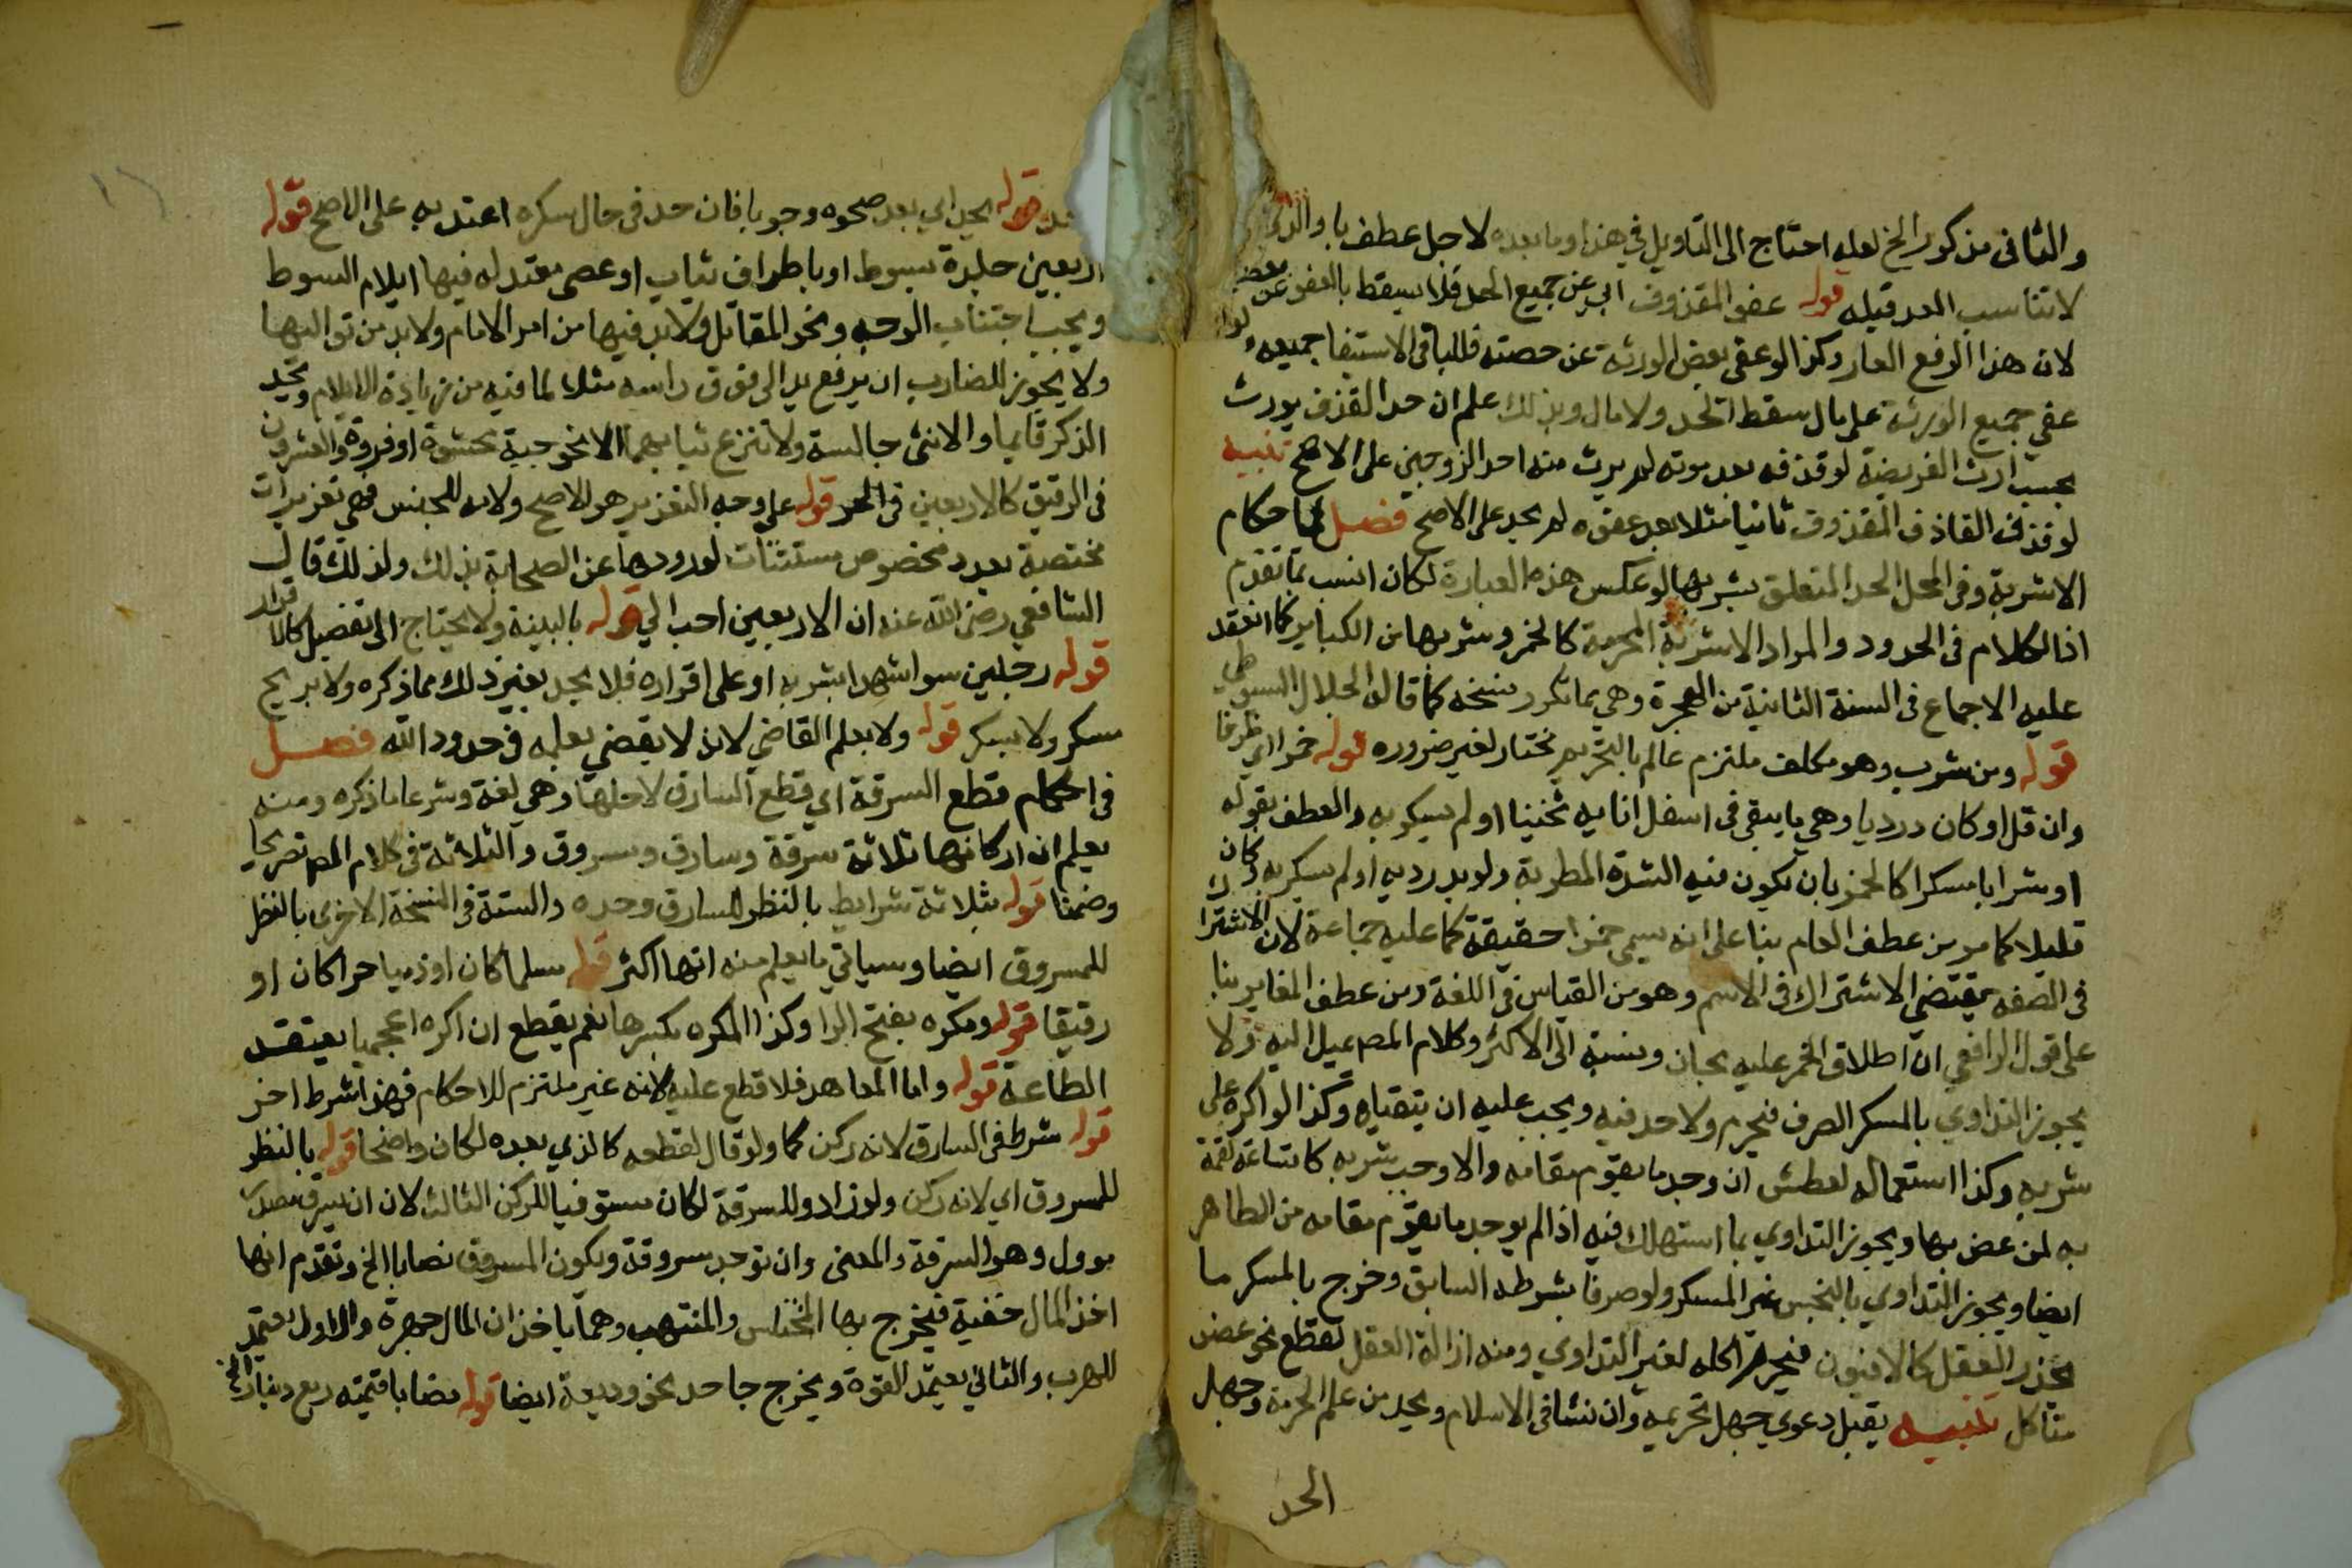 والثاني مذكور الخ لعله احتاج الى التاويل في هذا وما بعده لاجل عطف باو
لا تناسب العد قبله قوله عفو المقذوف اي عن جميع الحد فلا يسقط بالعفو عن بعضه
لان هذا الرفع العار وكذا لو عفي بعض الورثة عن حصته فللباقي الاستيفا جميعه ولو
عفي جميع الورثة على مال سقط الحد ولا مال وبذلك علم ان حد القذف يورث
بحسب ارث الفريضة لو قذفه بعد موته لم يرث منه احد الزوجين على الاصح تنبيه
لو قذف القاذف المقذوف ثانيا مثلا بعد عفوه لم يحد على الاصح فصل في احكام
الاشربة وفي المحل الحد المتعلق بشربها لو عكس هذه العبارة لكان انسب بما تقدم
اذ الكلام في الحدود والمراد الاشربة المحرمة كالخمر وشربها من الكباير كما انعقد
عليه الاجماع في السنة الثانية من الهجرة وهي مما تكرر نسخه كما قاله الجلال السيوطي
قوله ومن شرب وهو مكلف ملتزم عالم بالتحريم مختار لغير ضروره قوله خمرا اي صرفا
وان قل او كان درديا وهي ما يبقى في اسفل انايه ثخينا او لم يسكر به والعطف بقوله
او شرابا مسكرا كالخمر بان يكون فيه الشدة المطربة ولو بدرديه او لم يسكر به وكان
قليلا كما مر من عطف العام بنا على انه يسمى خمرا حقيقة كما عليه جماعة لان الاشتراك
في الصفه يقتضي الاشتراك في الاسم وهو من القياس في اللغة ومن عطف المغاير بنا
على قول الرافعي ان اطلاق الخمر عليه مجاز ونسبه الى الاكثر وكلام المصـ يميل اليه ولا
يجوز التداوي بالمسكر الصرف فيحرم ولا حد فيه ويجب عليه ان يتقياه وكذا لو اكره على
شربه وكذا استعماله لعطش ان وجد ما يقوم مقامه والا وجب شربه كاساغة لقمة
به لمن غص بها ويجوز التداوي بما استهلك فيه اذا لم يوجد ما يقوم مقامه من الطاهر
ايضا ويجوز التداوي بالنجس غير المسكر ولو صرفا بشرطه السابق وخرج بالمسكر ما
يخدر العقل كالافيون فيحرم اكله لغير التداوي ومنه ازالة العقل لقطع نحو عضو
متاكل تنبيه يقبل دعوي جهل تحريمه وان نشا في الاسلام ويحد من علم الحرمة وجهل
الحد
قوله يحد اي بعد صحوه وجوبا فان حد في حال سكره اعتد به على الاصح قوله
اربعين جلدة بسوط او باطراف ثياب او عصى معتدله فيها ايلام السوط
ويجب اجتناب الوجه ونحو المقاتل ولابد فيها من امر الامام ولابد من تواليها
ولا يجوز للضارب ان يرفع يد الى فوق راسه مثلا لما فيه من زيادة الايلام ويحد
الذكر قايما والانثى جالسة ولا تنزع ثيابهما الا نحو جبة محشوة او فروة والعشرون
في الرقيق كالاربعين في الحر قوله على وجه التعزير هو الاصح ولانه للجنس فهي تعزيرات
مختصة بعدد مخصوص مستثنات لورودها عن الصحابة بذلك ولذلك قال
الشافعي رضي الله عنه ان الاربعين احب الي قوله بالبينة ولا يحتاج الى تفصيل كالاقرار
قوله رجلين سوا شهدا بشربه او على اقراره فلا يحد بغير ذلك مما ذكره ولا بريح
سكر ولا بسكر قوله ولا بعلم القاضي لانه لا يقضي بعلمه في حدود الله فصل
في احكام قطع السرقة اي قطع السارق لاجلها وهي لغة وشرعا ما ذكره ومنه
يعلم ان اركانها ثلاثة سرقة وسارق ومسروق والثلاثة في كلام المصـ تصريحا
وضمنا قوله بثلاثة شرايط بالنظر للسارق وحده والستة في النسخة الاخرى بالنظر
للمسروق ايضا وسياتي ما يعلم منه انها اكثر قوله مسلما كان او ذميا حرا كان او
رقيقا قوله ومكره بفتح الرا وكذا المكره بكسرها نعم يقطع ان اكره اعجميا يعتقد
الطاعة قوله واما المعاهد فلا قطع عليه لانه غير ملتزم للاحكام فهذا شرط اخر
قوله شرط في السارق لانه ركن كما ولو قال لقطعه كالذي بعده لكان واضحا قوله بالنظر
للمسروق اي لانه ركن ولو زاد وللسرقة لكان مستوفيا للركن الثالث لان ان يسرق مصدر
موول وهو السرقة والمعنى وان توجد سروقة ويكون المسروق نصابا الخ وتقدم انها
اخذ المال خفية فيخرج بها المختلس والمنتهب وهما ياخذان المال جهرة والاول يعتمد
للهرب والثاني يعتمد القوة ويخرج جاحد نحو وديعة ايضا قوله نصابا قيمته ربع دينار الخ